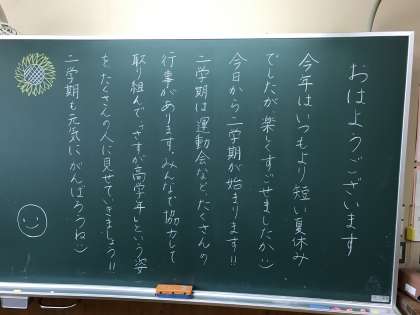 おはようございます
今年はいつもより短い夏休み
でしたが楽しくすごせましたか:)
今日から二学期が始まります!!
二学期は運動会など、たくさんの
行事があります。みんなで協力して
取り組んで、"さすが高学年"という姿
をたくさんの人に見せていきましょう!!
二学期も元気にがんばろうね:)